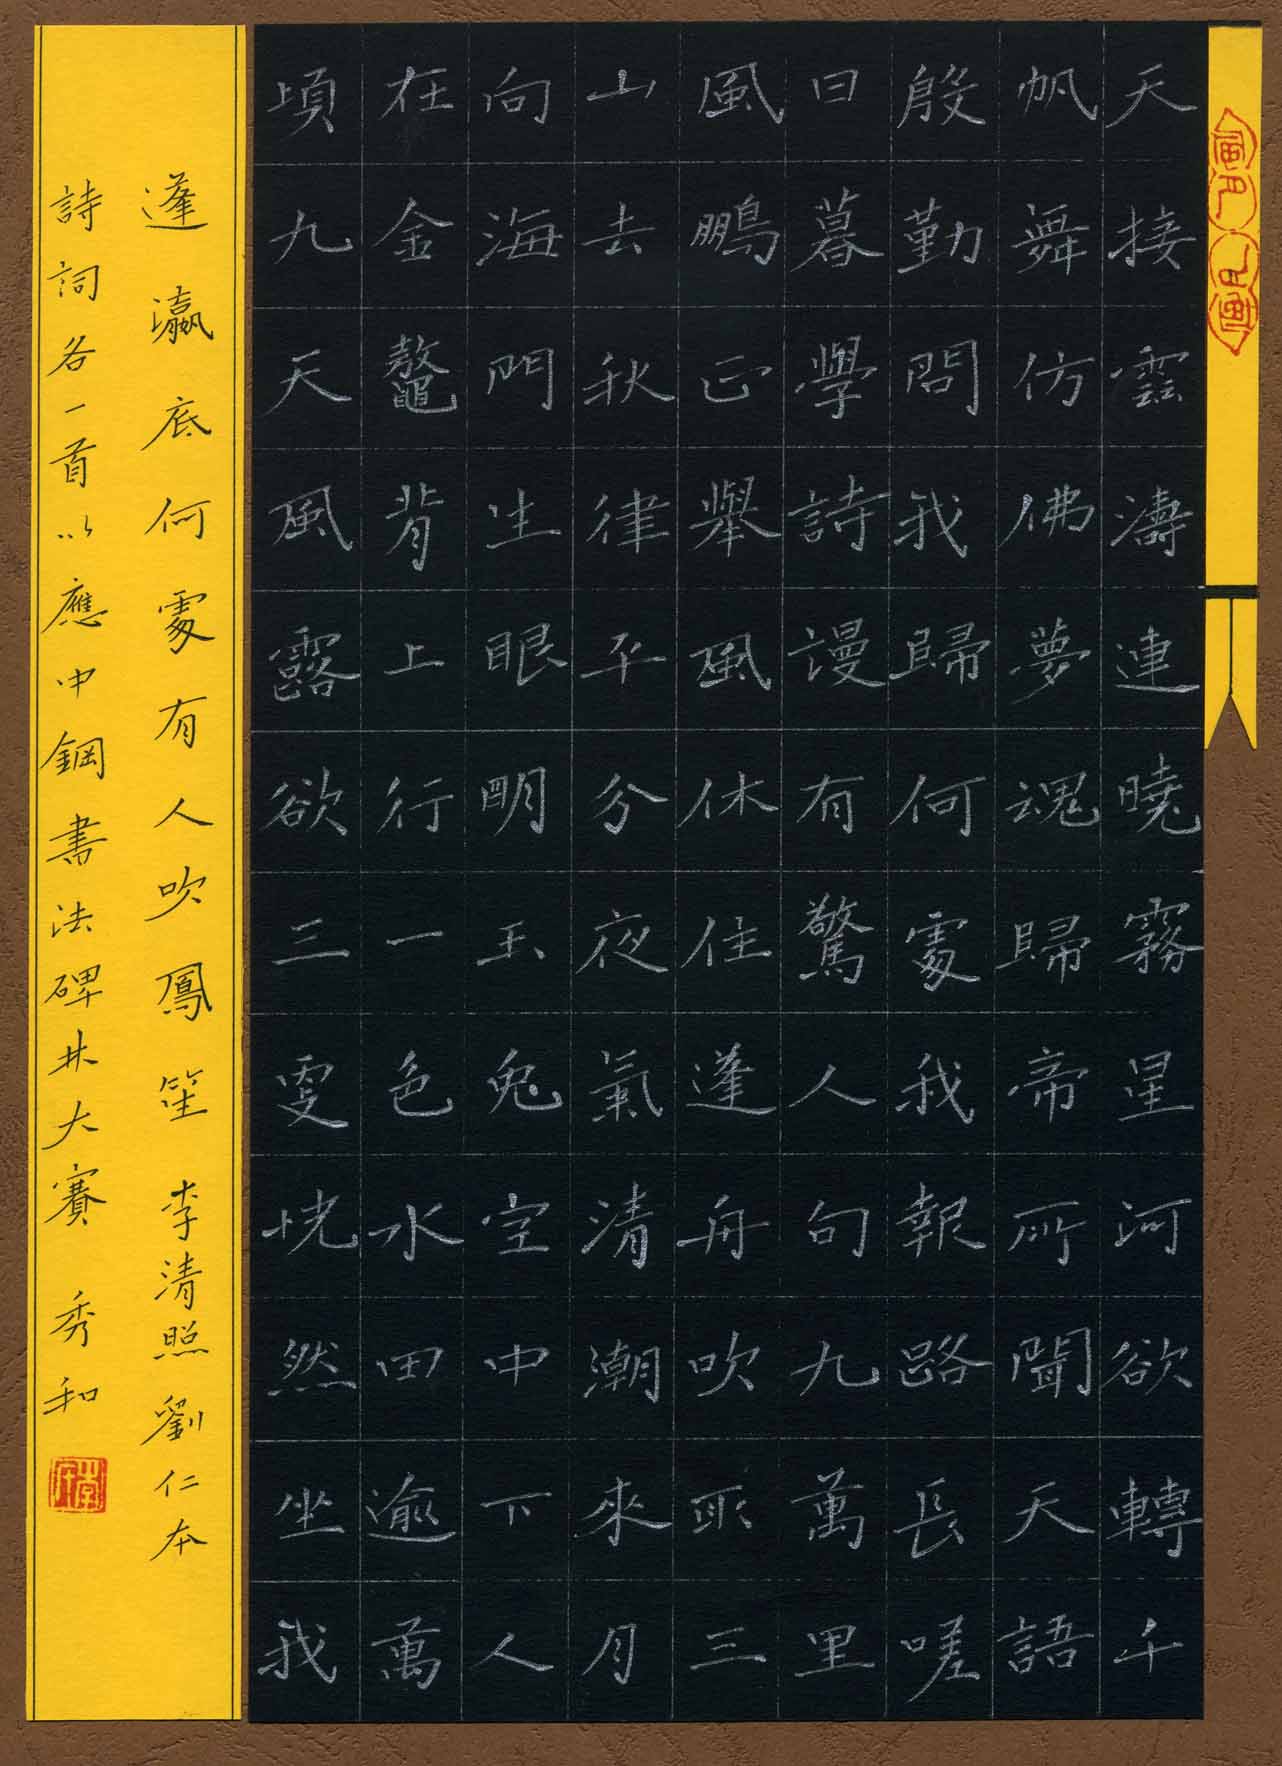 天接雲濤連曉霧星河欲轉千
帆舞仿佛夢魂歸帝所聞天語
殷勤問我歸何處我報路長嗟
日暮學詩謾有驚人句九萬里
風鵬正舉風休住蓬舟吹取三
山去秋律平分夜氣清潮來月
向海門生眼明玉兔空中下人
在金鰲背上行一色水田逾萬
頃九天風露欲三更恍然坐我
蓬瀛底何處有人吹鳳笙 李清照劉仁本
詩詞各一首以應中鋼書法碑林大賽 秀和